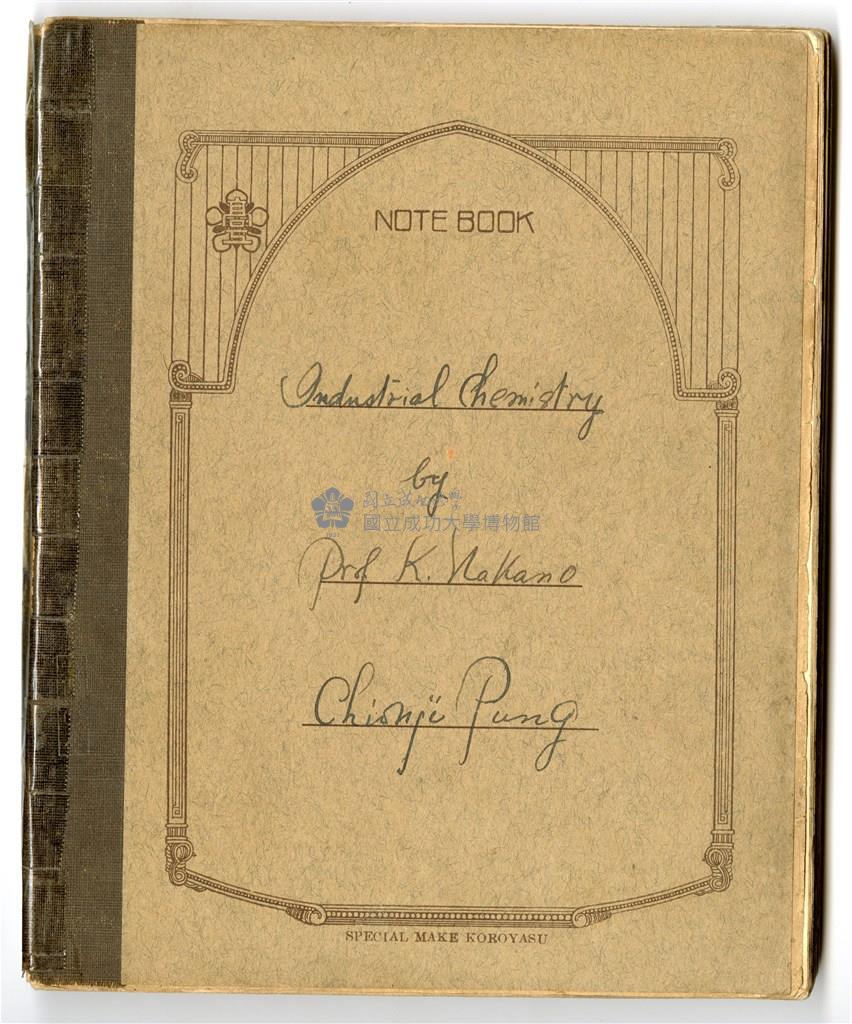 高工
NOTE BOOK
Industrial Chemistry
by
國立成功大學
國立成功大學博物館
Prof K. Nakano
Chionji Pung
SPECIAL MAKE KOROYASU